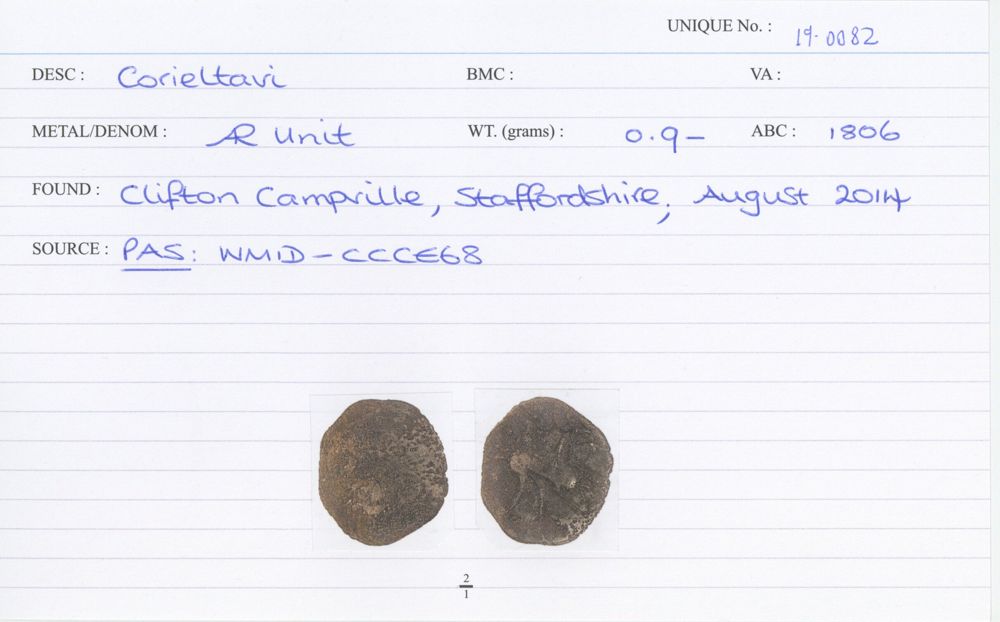 UNIQUE No. : 19.0082
DESC : Corieltavi BMC : VA :
METAL/DENOM : AR Unit WT. (grams) : 0.9- ABC : 1806
FOUND : Clifton Campville, Staffordshire, August 2014
SOURCE : PAS: WMID-CCCE68
2
1